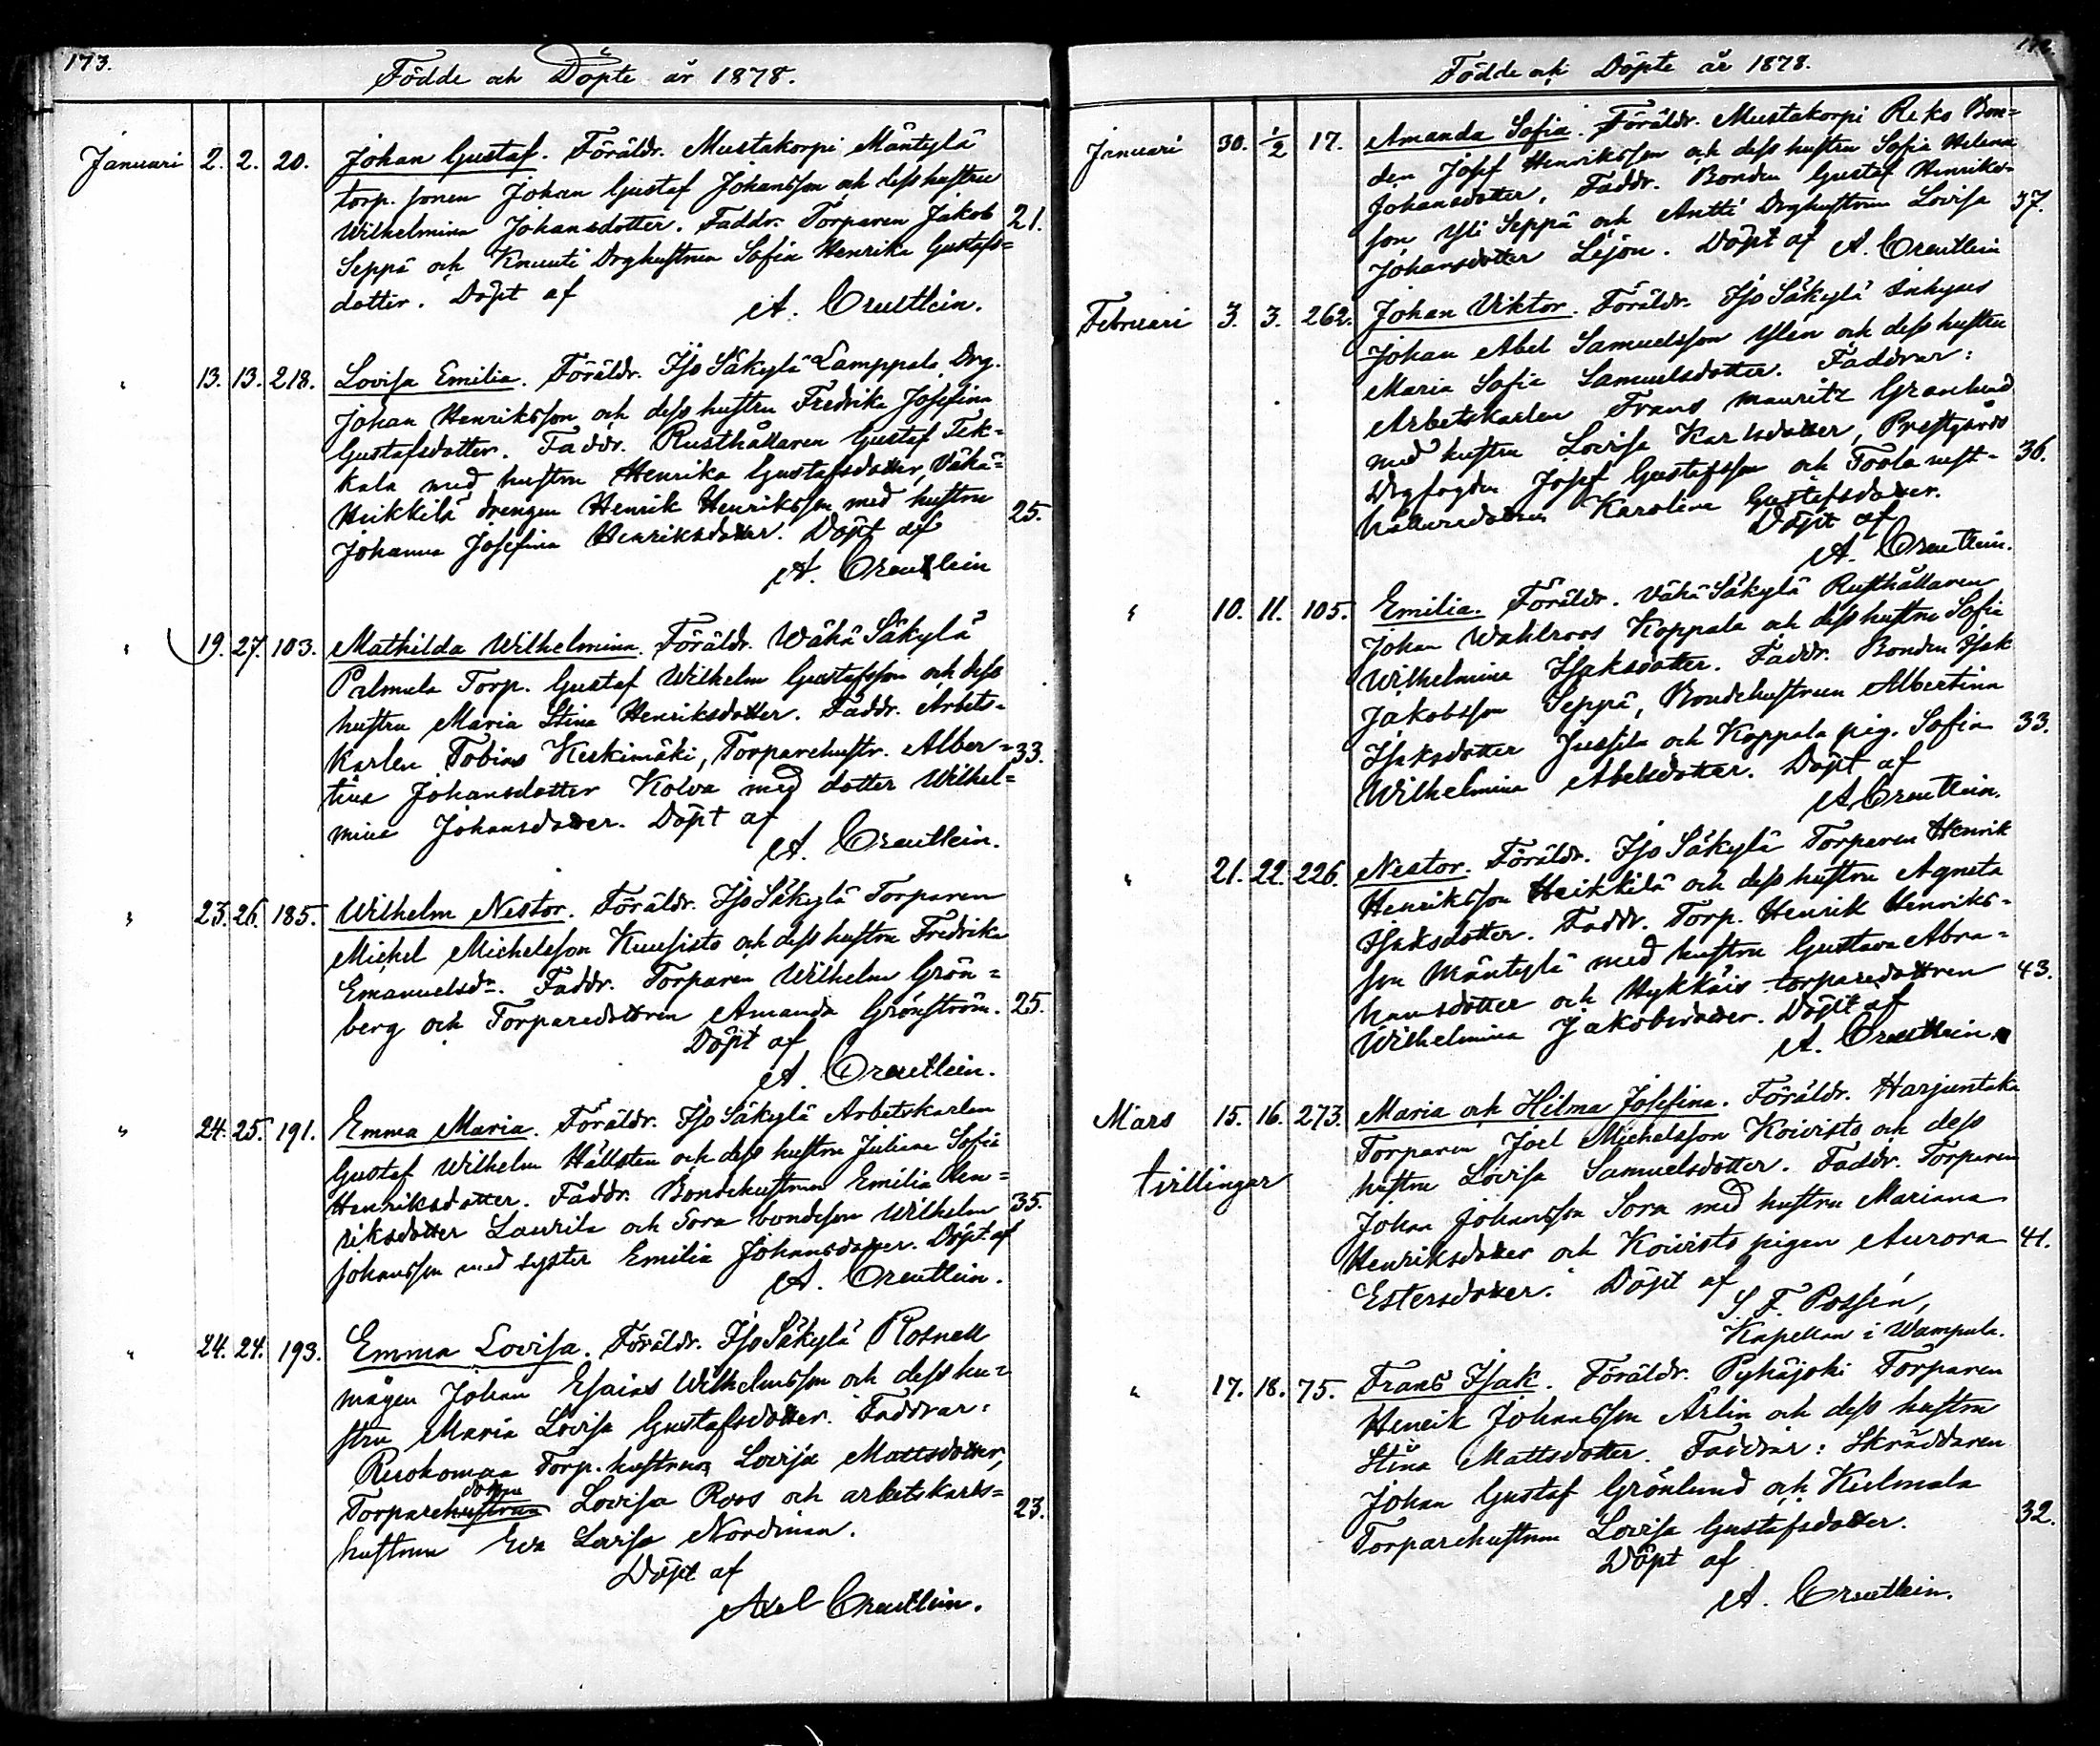 173.
Födde och Döpte år 1878.
Januari 2. 2. 20. Johan Gustaf. Föräldr. Mustakorpi Mäntylä
torp. sonen Johan Gustaf Johansson och dess hustru
Wilhelmina Johansdotter. Faddr. Torparen Jakob 21.
Seppä och Knuuti Drghustrun Sofia Henrika Gustafs=
dotter. Döpt af
A. Creutlein.
" 13. 13. 218. Lovisa Emilia. Föräldr. Iso Säkylä Lamppala Drg.
Johan Henriksson och dess hustru Fredrika Josefina
Gustafsdotter. Faddr. Rusthållaren Gustaf Tek=
kala med hustru Henrika Gustafsdotter, Vähä=
Heikkilä drengen Henrik Henriksson med hustru 25.
Johanna Josefina Henriksdotter. Döpt af
A. Creutlein
" 19. 27. 103. Mathilda Wilhelmina. Föräldr. Wähä Säkylä
Palmula Torp. Gustaf Wilhelm Gustafsson och dess
hustru Maria Stina Henriksdotter. Faddr. Arbets=
karlen Tobias Keskimäki, Torparehustr. Alber= 33.
tina Johansdotter Kolva med dotter Wilhel=
mina Johansdotter. Döpt af
A. Creutlein.
" 23. 26. 185. Wilhelm Nestor. Föräldr. Iso Säkylä Torparen
Michel Michelsson Kuusisto och dess hustru Fredrika
Emanuelsdr. Faddr. Torparen Wilhelm Grön=
berg och Torparedottren Amanda Grönström. 25.
Döpt af
A. Creutlein.
" 24. 25. 191. Emma Maria. Föräldr. Iso Säkylä Arbetskarlen
Gustaf Wilhelm Hällsten och dess hustru Juliana Sofia
Henriksdotter. Faddr. Bondehustrun Emilia Hen=
riksdotter Laurila och Sora bondeson Wilhelm 35.
Johansson med syster Emilia Johansdotter. Döpt af
A. Creutlein.
" 24. 24. 193. Emma Lovisa. Föräldr. Iso Säkylä Rosnell
mågen Johan Esaias Wilhelmsson och dess hu=
stru Maria Lovisa Gustafsdotter. Faddrar:
Ruohomaa Torp. hustrun Lovisa Mattsdotter,
dottren
Torparehustrun Lovisa Roos och arbetskarls= 23.
hustrun Eva Lovisa Nordman.
Döpt af
Axel Creutlein.
Födde och Döpte år 1878.
Januari 30. 1/2 17. Amanda Sofia. Föräldr. Mustakorpi Reko Bon=
den Josef Henriksson och dess hustru Sofia Helena
Johansdotter, Faddr. Bonden Gustaf Henriks=
son Yli Seppä och Antti Drghustrun Lovisa 37.
Johansdotter Lejon. Döpt af A. Creutlein
Februari 3. 3. 262. Johan Viktor. Föräldr. Iso Säkylä Inhyses
Johan Abel Samuelsson Ylén och dess hustru
Maria Sofia Samuelsdotter. Faddrar:
Arbetskarlen Frans Mauritz Granlund
med hustru Lovisa Karlsdotter, Prestgårds
Drgfogden Josef Gustafsson och Toola rust- 36.
hållaredottren Karolina Gustafsdotter.
Döpt af
A. Creutlein.
" 10. 11. 105. Emilia. Föräldr. Vähä Säkylä Rusthållaren
Johan Wahlroos Koppala och dess hustru Sofia
Wilhelmina Isaksdotter. Faddr. Bonden Isak
Jakobsson Seppä, Bondehustrun Albertina
Isaksdotter Jussila och Koppala pig. Sofia 33.
Wilhelmina Abelsdotter. Döpt af
A. Creutlein.
" 21. 22. 226. Nestor. Föräldr. Iso Säkylä Torparen Henrik
Henriksson Heikkilä och dess hustru Agneta
Isaksdotter. Faddr. Torp. Henrik Henriks=
son Mäntylä med hustru Gustava Abra=
hamsdotter och Hykkäis torparedottren 43.
Wilhelmina Jakobsdotter. Döpt af
A. Creutlein.
Mars 15. 16. 273. Maria och Hilma Josefina. Föräldr. Harjuntaka
Torparen Joel Michelsson Koivisto och dess
tvillingar hustru Lovisa Samuelsdotter. Faddr. Torparen
Johan Johansson Sora med hustru Mariana
Henriksdotter och Koivisto pigan Aurora 41.
Estersdotter. Döpt af
S. F. Possén,
Kapellan i Wampula.
" 17. 18. 75. Frans Isak. Föräldr. Pyhäjoki Torparen
Henrik Johansson Ärlin och dess hustru
Stina Mattsdotter. Faddrar: Skräddaren
Johan Gustaf Grönlund och Kulmala
Torparehustrun Lovisa Gustafsdotter. 32.
Döpt af
A. Creutlein.